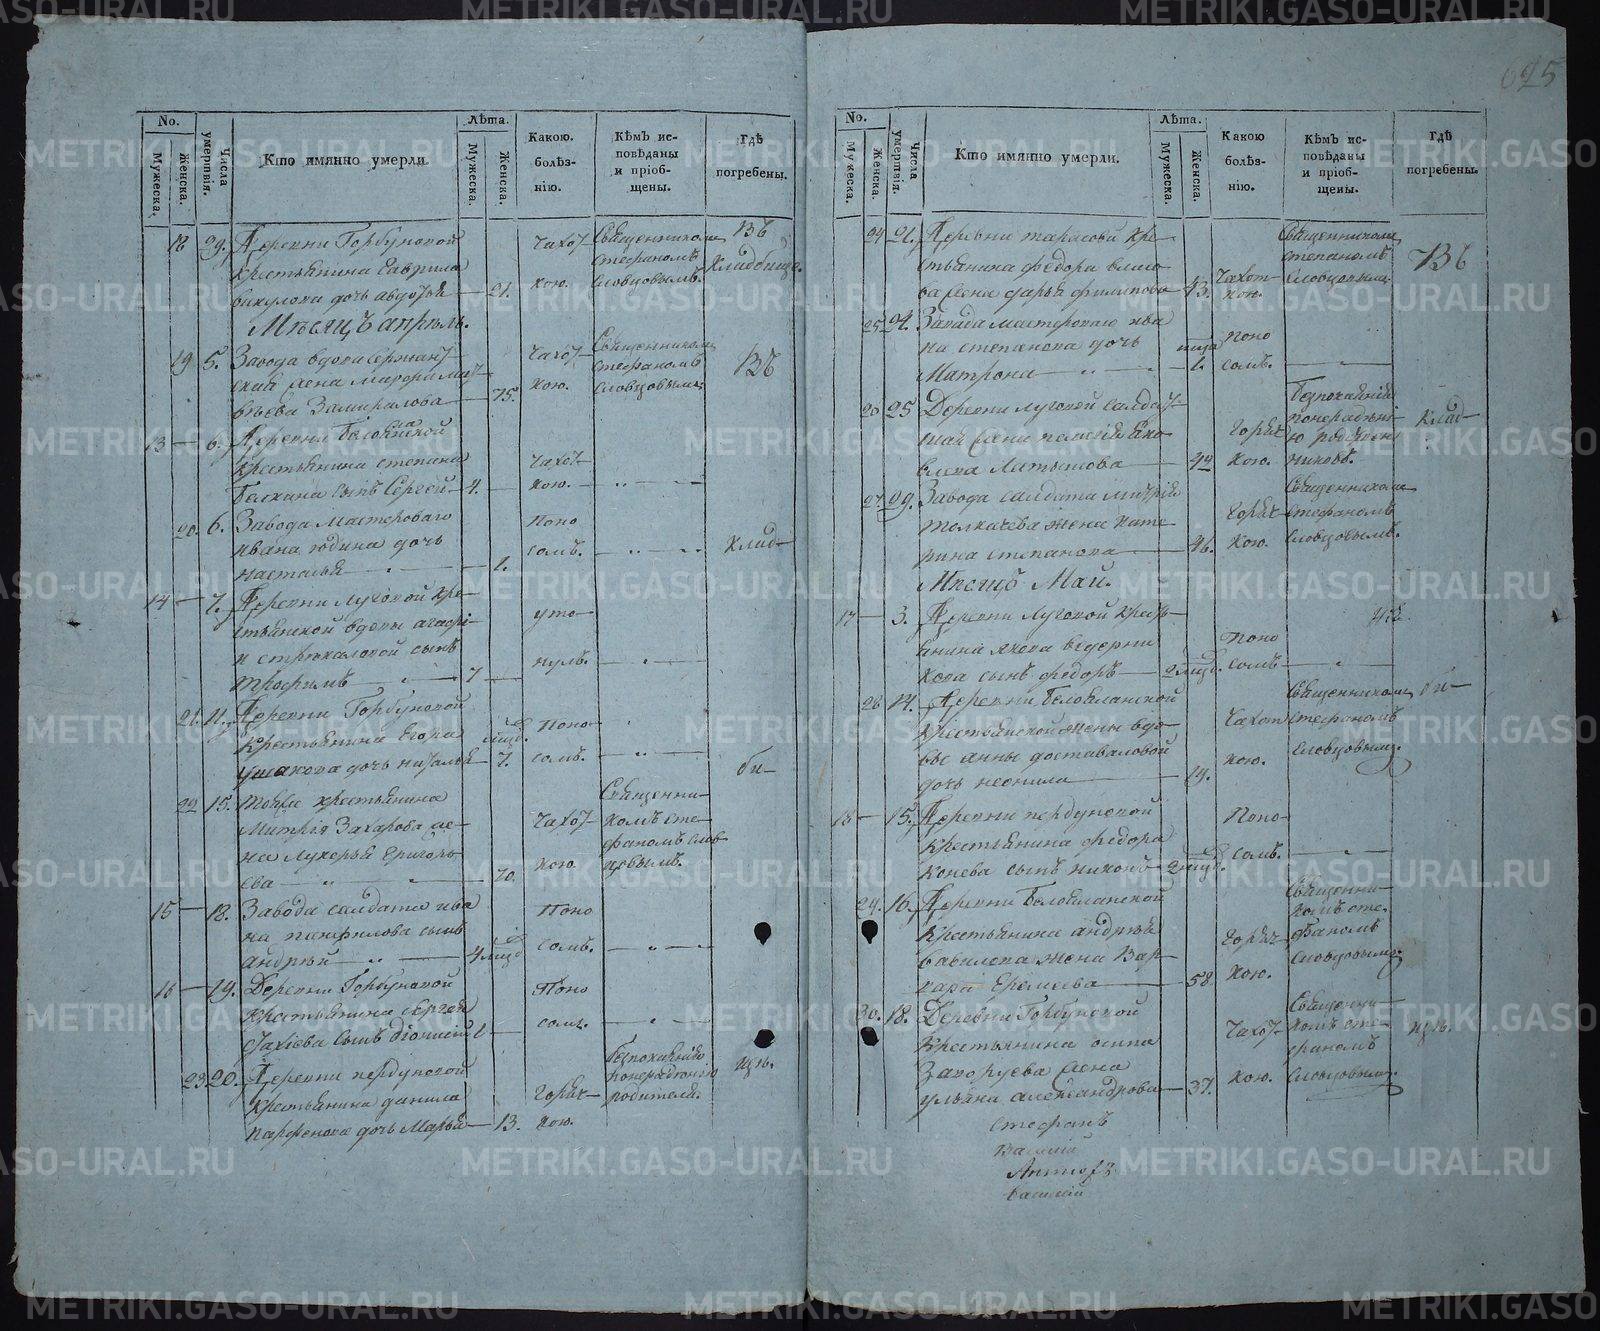 625
No.
Мужеска.
Женска.
Числа умертвія.
Кто имянно умерли.
Лѣта.
Мужеска.
Женска.
Какою болѣз-
нію.
Кѣмъ ис-
повѣданы
и пріоб-
щены.
Гдѣ
погребены.
18 29. Деревни Горбуновой
крестьянина Гаврила
Вакулова дочь Авдотья — 21.
Чахот-
кою.
Священникомъ
Стефаномъ
Словцовымъ.
въ
кладбище.
Мѣсяцъ апрѣль.
19 5. Завода вдова сержант-
ская жена Марфа Мат-
вѣева Замиралова — 75.
Чахот-
кою.
Священникомъ
Стефаномъ
Словцовымъ.
въ
13 — 6. Деревни
крестьянина Степана
сынъ Сергей — 4.
Чахот-
кою. — „ — „ —
20. 6. Завода мастероваго
Ивана Юдина дочь
Насталья — „ — 1.
Поно
сомъ. — „ — „
клад-
14 — 7. Деревни Луговой кре-
стьянской вдовы Агафі-
и Стрекаловой сынъ
Трофимъ — „ — 7
уто-
нулъ. — „ —
21. 11. Деревни Горбуновой
крестьянина Егора
Ушакова дочь Наталья 7.
Поно-
сомъ. — „ —
би-
22 15. Тоже крестьянина
Митрія Захарова же-
на Лукерья Григорь-
ева — „ — „ — 70.
Чахот-
кою
Священни-
комъ Сте-
фаномъ Слов-
цовымъ.
15 — 18. Завода солдата Ива
на Панфилова сынъ
Андрѣй — „ — 4 нид
Поно
сомъ. — „ —
16 — 19. Деревни Горбуновой
крестьянина Сергея
сынъ Діонисій 1 —
Поно
сомъ. — „ —
23. 20. Деревни Пердуновой
крестьянина Данила
Парфенова дочь Марья — 13.
Горяч-
кою.
безпокаянія
понераденію
родителя.
щѣ.
No.
Мужеска.
Женска.
Числа умертвія.
Кто имянно умерли.
Лѣта.
Мужеска.
Женска.
Какою
болѣз-
нію.
Кѣмъ ис-
повѣданы
и пріоб-
щены.
Гдѣ
погребены.
24 21. Деревни Тарасовой кре-
стьянина Федора Власо-
ва жена Дарья Филипова — 43.
Чахот-
кою.
Священникомъ
Степаномъ
Словцовымъ
въ
25 24. Завода мастероваго Ива
на Степанова дочь
Матрона — „ — „ — 1.
Поно
сомъ. — „ —
26 25 Деревни Луговой салдат-
ская жена Пелагія Яко-
влева Латышова — 44
Горяч-
кою.
безпокаянія
понерадѣні-
ю родствен-
никовъ.
клад-
27. 29. Завода салдата Митрія
Толкачева жена Кате-
рина Степанова — 46.
Горяч-
кою.
Священникомъ
Стефаномъ
Словцовымъ.
Мѣсяцъ Май.
17 — 3. Деревни Луговой кресть-
янина Якова Ведерни
кова сынъ Федоръ — 2 нид.
Поно
сомъ — „ —
28 14. Деревни
крестьянской жены вдо-
вы Анны Доставаловой
дочь Неонила — 19.
Чахот-
кою.
Священникомъ
Стефаномъ
Словцовымъ.
би-
18 — 15. Деревни Пердуновой
крестьянина Федора
Конева сынъ Никонъ — 2 нид.
Поно-
сомъ. — „ —
29. 16. Деревни
крестьянина Андрѣя
Вавилова жена Вар-
вара Еремеева — 58
Горяч-
кою.
Священни-
комъ Сте-
фаномъ
Словцовымъ.
30. 18. Деревни Горбуновой
крестьянина Осипа
жена
Ульяна Александрова — 37.
Чахот-
кою.
Священни-
комъ Сте-
фаномъ
Словцовымъ.
щѣ.
Стефанъ
Василій
Василій
METRIKI.GASO-URAL.RU